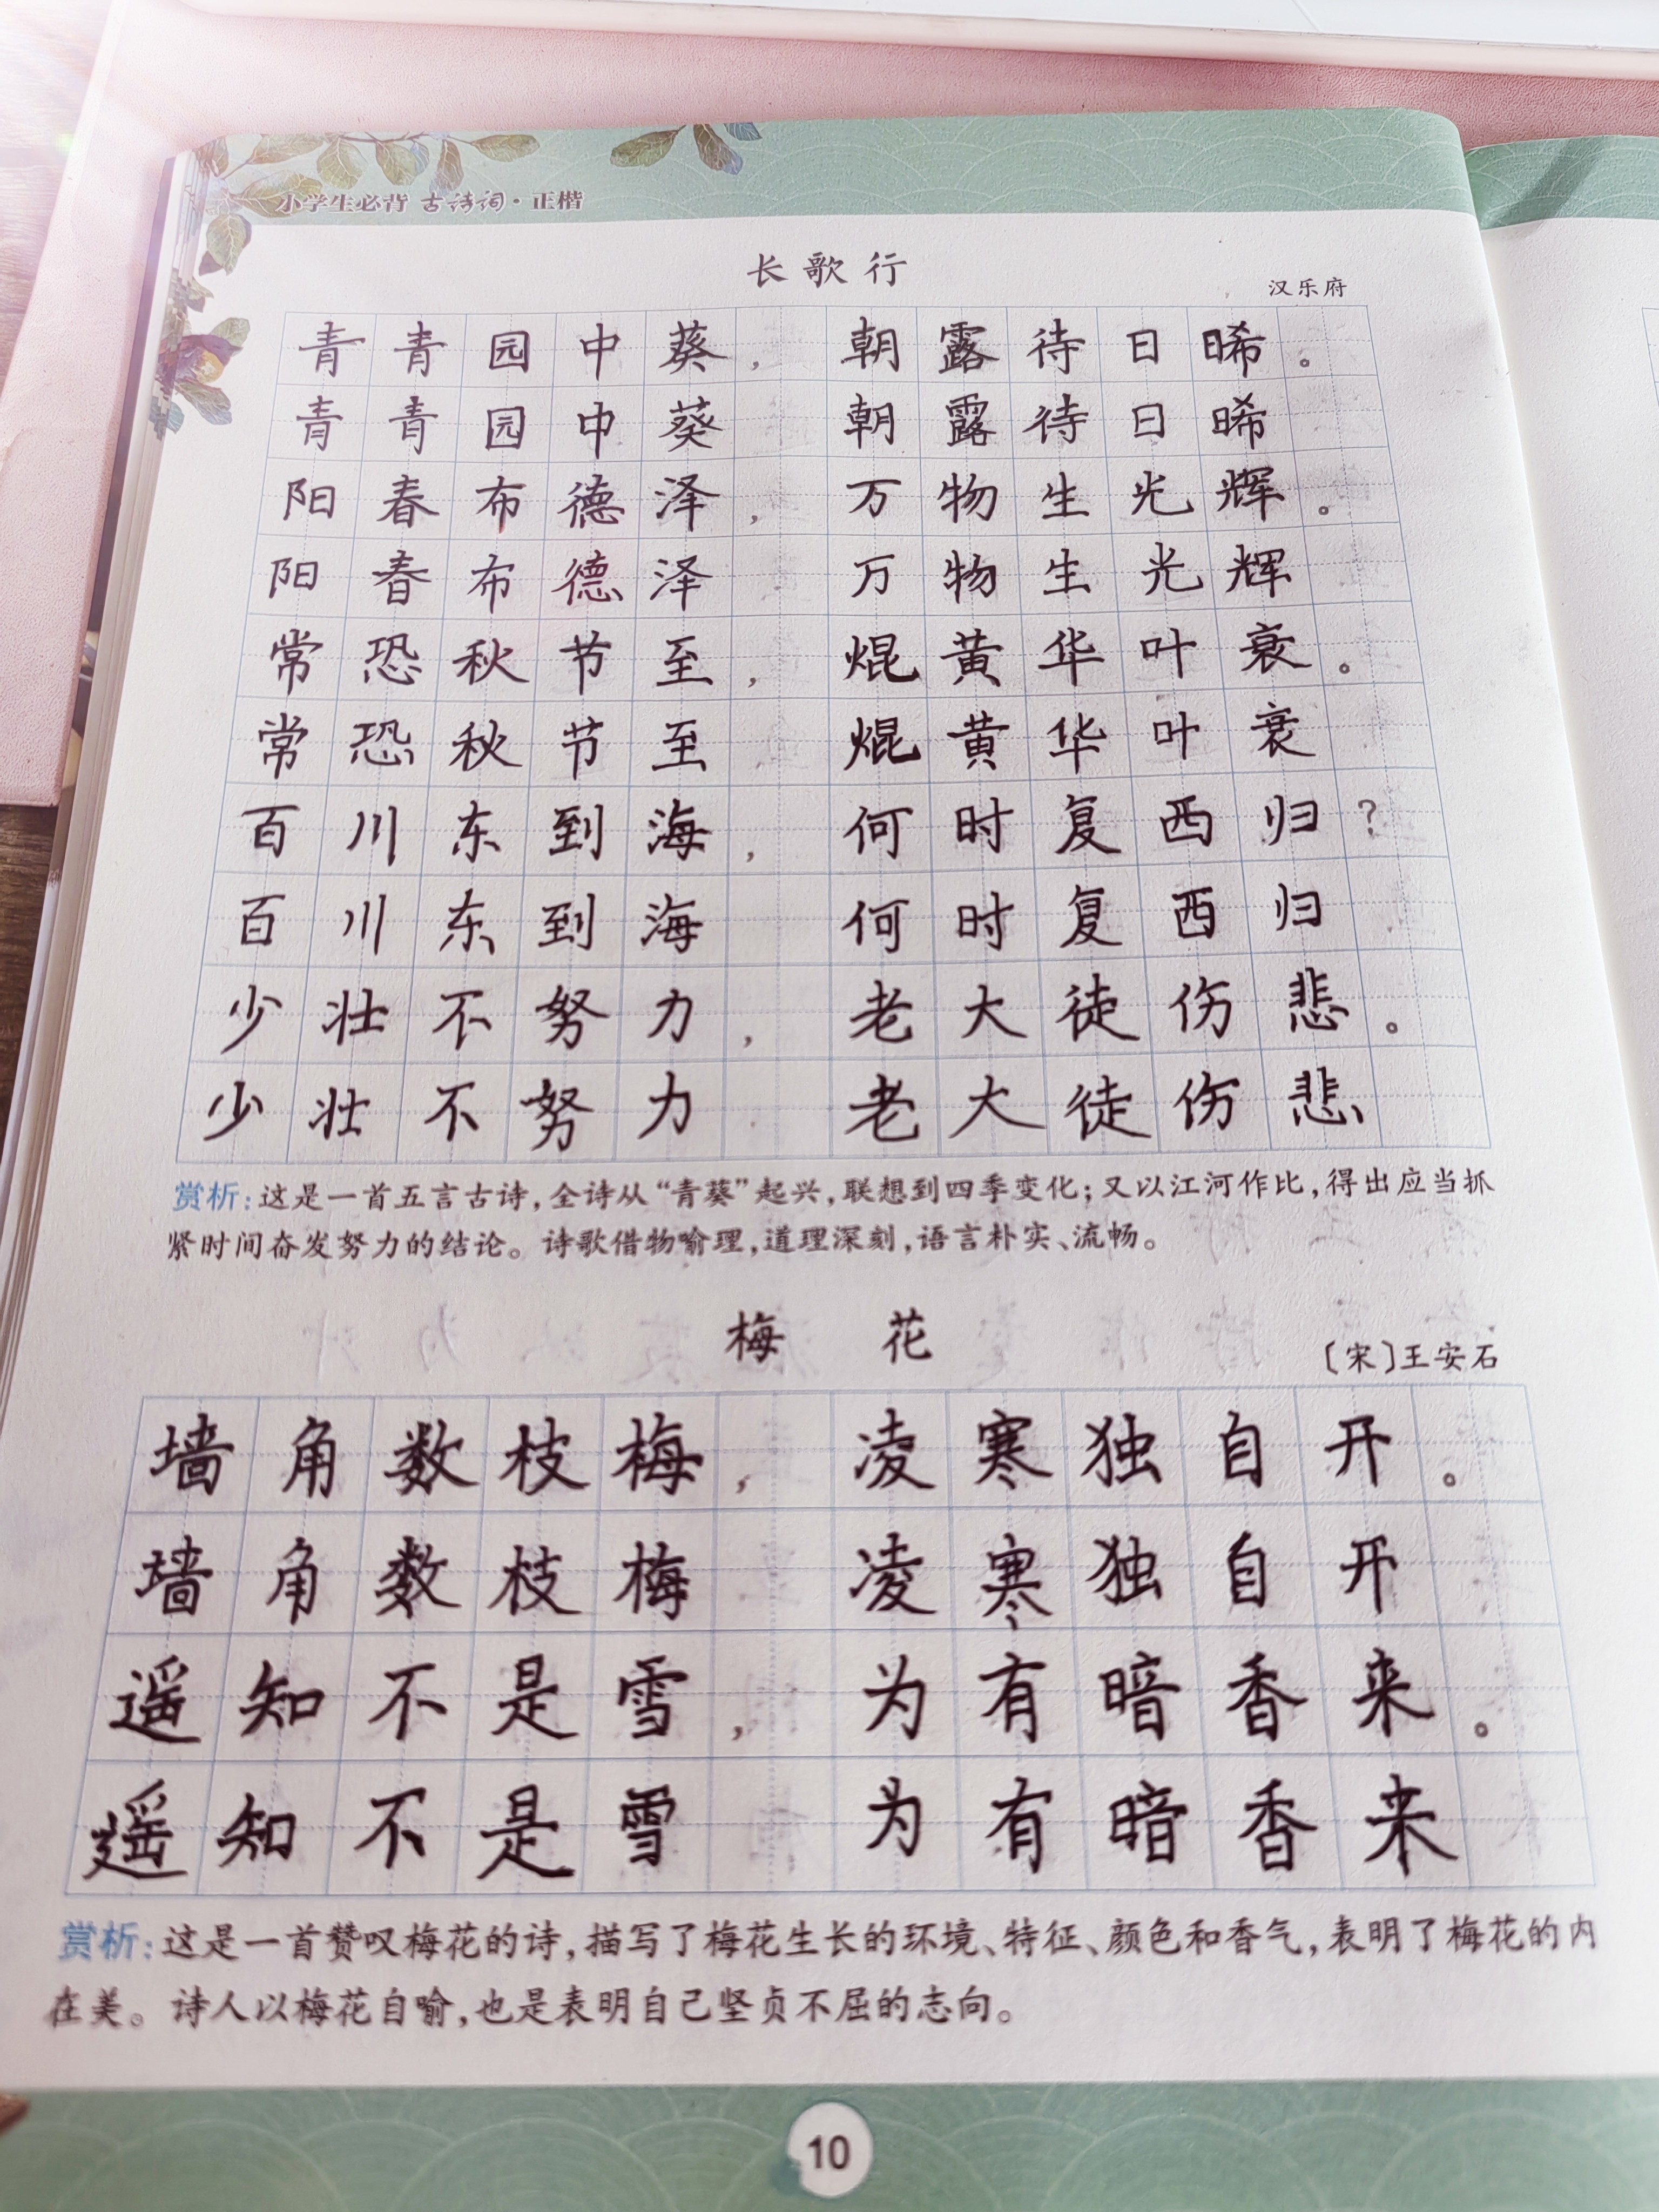 小学生必背 古诗词·正楷
长歌行
汉乐府
青青园中葵，朝露待日晞。
青青园中葵 朝露待日晞
阳春布德泽，万物生光辉。
阳春布德泽 万物生光辉
常恐秋节至，焜黄华叶衰。
常恐秋节至 焜黄华叶衰
百川东到海，何时复西归？
百川东到海 何时复西归
少壮不努力，老大徒伤悲。
少壮不努力 老大徒伤悲
赏析：这是一首五言古诗，全诗从“青葵”起兴，联想到四季变化；又以江河作比，得出应当抓
紧时间奋发努力的结论。诗歌借物喻理，道理深刻，语言朴实、流畅。
梅 花
〔宋〕王安石
墙角数枝梅，凌寒独自开。
墙角数枝梅 凌寒独自开
遥知不是雪，为有暗香来。
遥知不是雪 为有暗香来
赏析：这是一首赞叹梅花的诗，描写了梅花生长的环境、特征、颜色和香气，表明了梅花的内
在美。诗人以梅花自喻，也是表明自己坚贞不屈的志向。
10